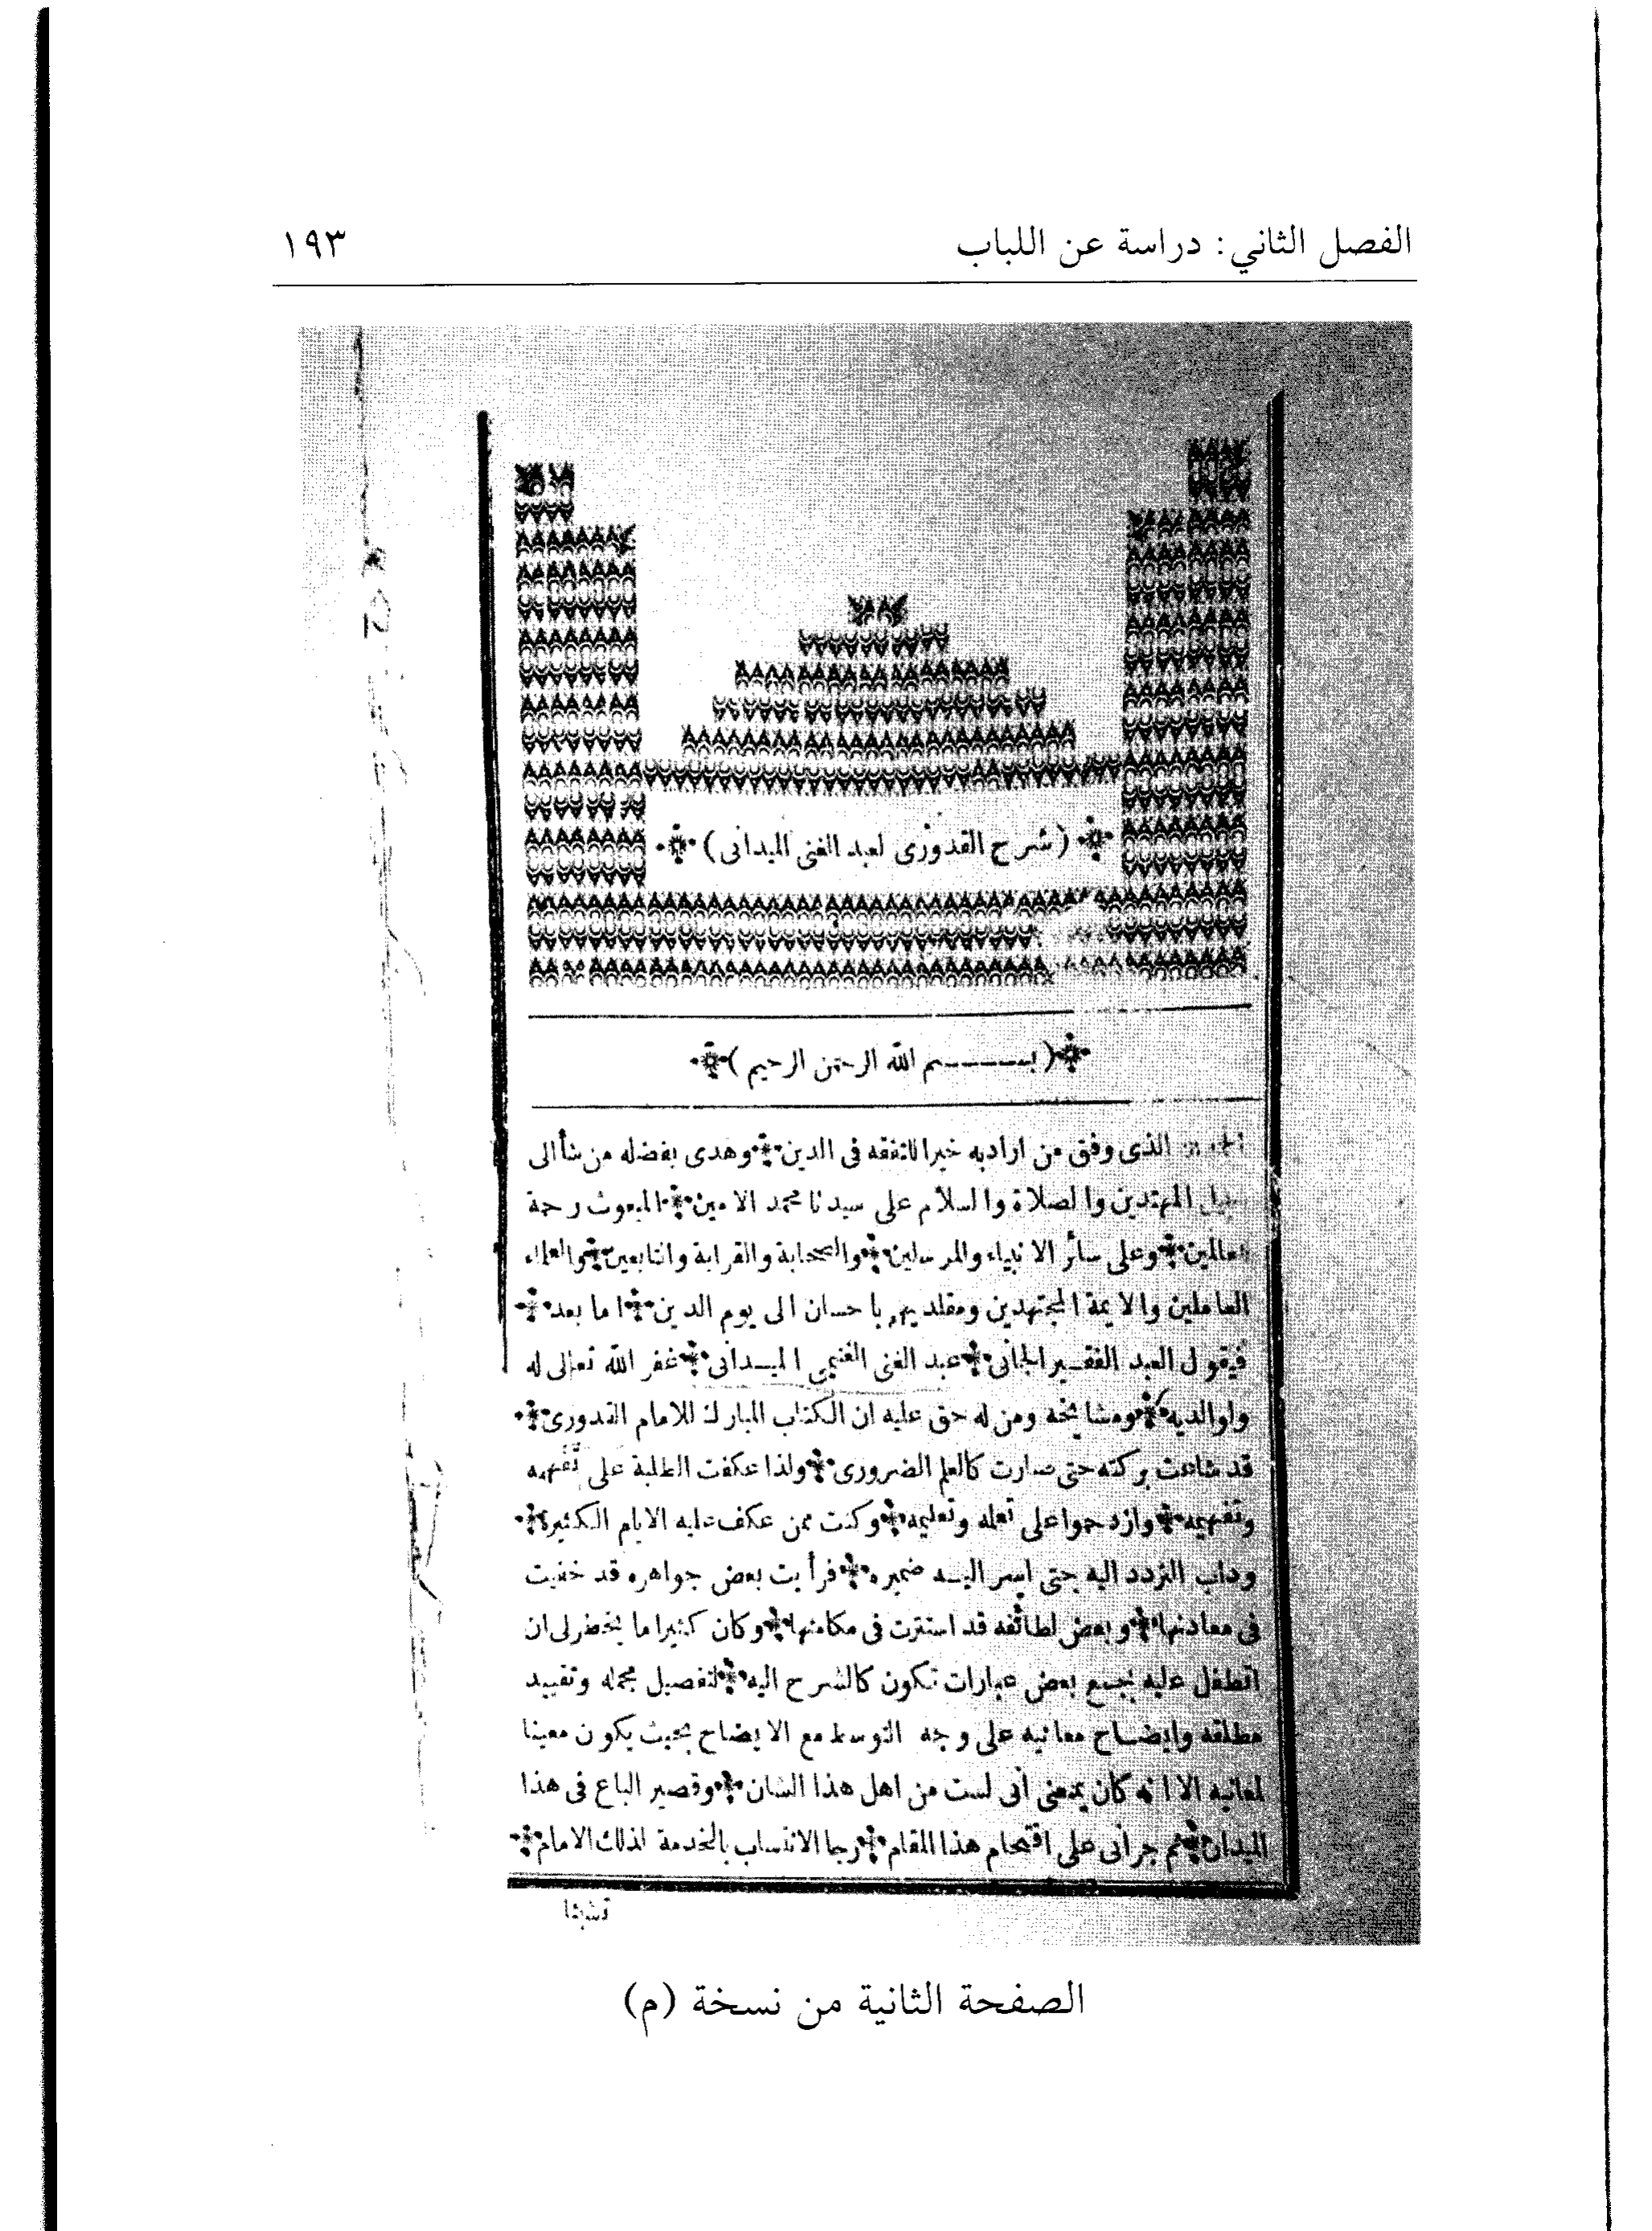 الفصل الثاني: دراسة عن اللباب ١٩٣
(شرح القدورى لعبد الغنى الميدانى)
(بسم الله الرحمن الرحيم)
الذى وفق من اراد به خيرا للتفقه فى الدين * وهدى بفضله من شأ الى
سبيل المهتدين والصلاة والسلام على سيدنا محمد الامين * المبعوث رحمة
للعالمين * وعلى سائر الانبياء والمرسلين * والصحابة والقرابة والتابعين * والعلماء
العاملين والايمة المجتهدين ومقلديهم باحسان الى يوم الدين * اما بعد *
فيقول العبد الفقير الجانى * عبد الغنى الغنيمى الميدانى * غفر الله تعالى له
ولوالديه * ومشايخه ومن له حق عليه ان الكتاب المبارك للامام القدورى *
قد شاعت بركته حتى صارت كالعلم الضرورى * ولذا عكفت الطلبة على تفهمه
وتفهيمه * وازدحموا على تعلمه وتعليمه * وكنت ممن عكف عليه الايام الكثيرة *
وداب التردد اليه حتى اسر اليه ضميره * فرأيت بعض جواهره قد خفيت
فى معادنها * وبعض لطائفه قد استترت فى مكامنها * وكان كثيرا ما يخطر لى ان
اتطفل عليه بجمع بعض عبارات تكون كالشرح اليه * لتفصيل مجمله وتقييد
مطلقه وايضاح معانيه على وجه التوسط مع الايضاح بحيث يكون معينا
لمعانيه الا انه كان يمنعنى أنى لست من اهل هذا الشان * وقصير الباع فى هذا
الميدان * ثم جرأنى على اقتحام هذا المقام * رجا الانتساب بالخدمة لذلك الامام *
تشبثا
الصفحة الثانية من نسخة (م)